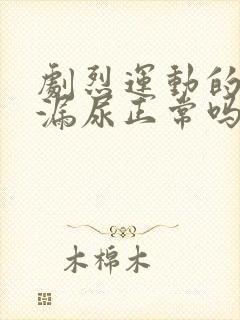 劇烈運動的
漏尿正常吗
木棉木